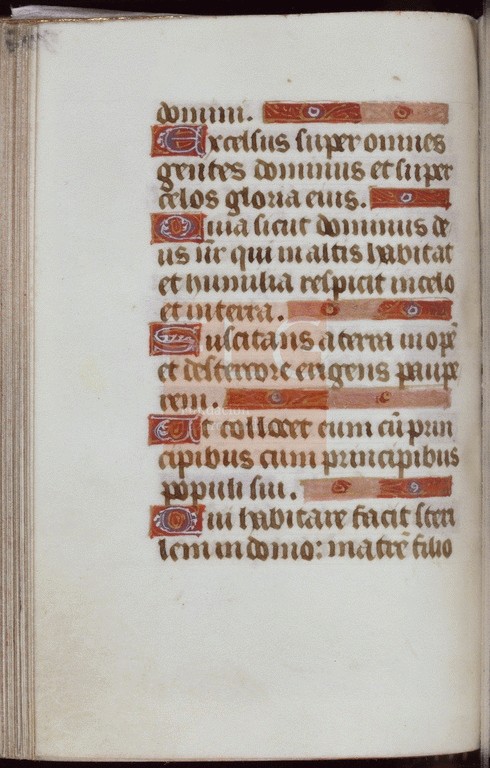 domini.
Excelsus super omnes
gentes dominus et super
celos gloria eius.
Quis sicut dominus de
us nr̄ qui in altis habitat
et humilia respicit in celo
et in terra.
Suscitans a terra inopē
et de stercore erigens paupe
rem.
Ut collocet eum cū prin
cipibus cum principibus
populi sui.
Qui habitare facit steri
lem in domo: matrē filio